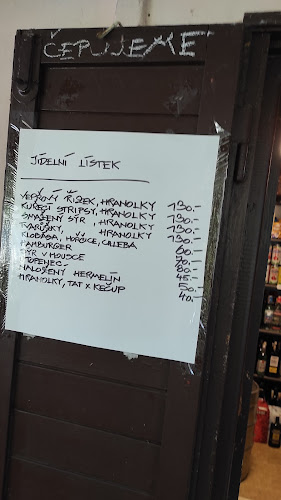 ČEPUJEME
JÍDELNÍ LÍSTEK
VEPŘOVÝ ŘÍZEK, HRANOLKY 190.-
KUŘECÍ STRIPSY, HRANOLKY 190.-
SMAŽENÝ SÝR, HRANOLKY 190.-
TVARŮŽKY, HRANOLKY 190.-
KLOBÁSA, HOŘČICE, CHLEBA 60.-
HAMBURGER 70.-
SÝR V HOUSCE 80.-
UTOPENEC 45.-
NALOŽENÝ HERMELÍN 50.-
HRANOLKY, TAT X KEČUP 40.-